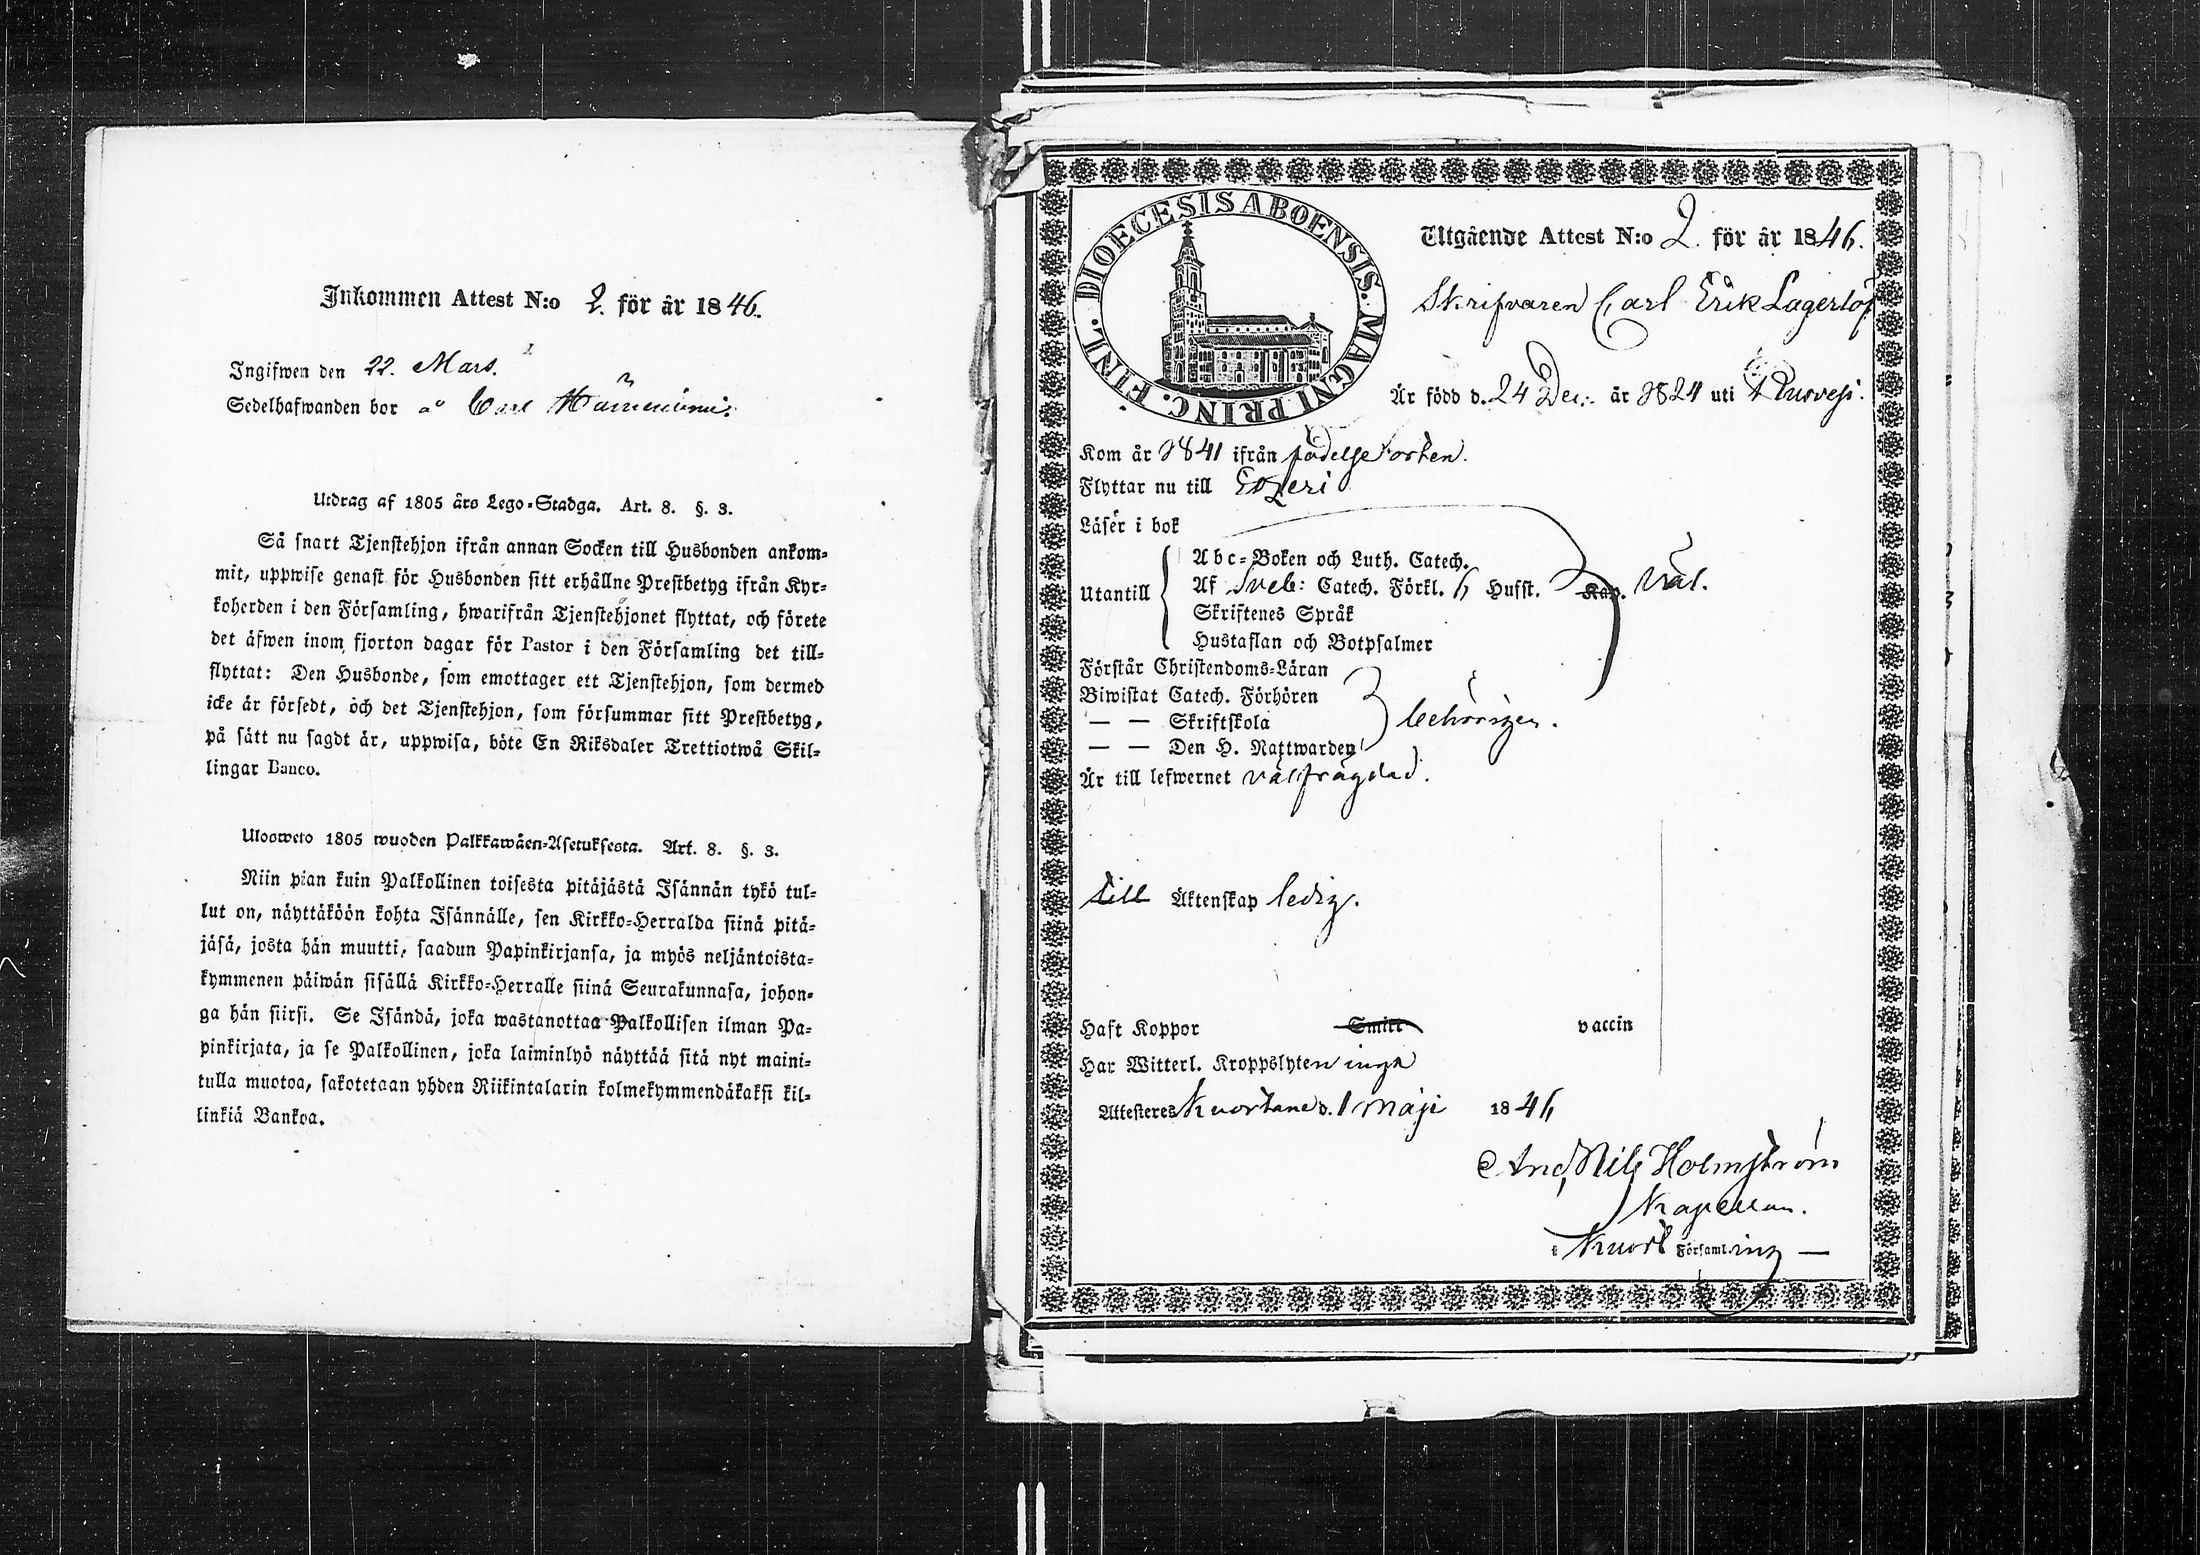 Inkommen Attest N:o 2. för år 1846.
Ingifwen den 22. Mars.
Sedelhafwanden bor
Utdrag af 1805 års Lego-Stadga. Art. 8. §. 3.
Så snart Tjenstehjon ifrån annan Socken till Husbonden ankom-
mit, uppwise genast för Husbonden sitt erhållne Prestbetyg ifrån Kyr-
koherden i den Församling, hwarifrån Tjenstehjonet flyttat, och förete
det äfwen inom fjorton dagar för Pastor i den Församling det till-
flyttat: Den Husbonde, som emottager ett Tjenstehjon, som dermed
icke är försedt, och det Tjenstehjon, som försummar sitt Prestbetyg,
på sätt nu sagdt är, uppwisa, böte En Riksdaler Trettiotwå Skil-
lingar Banco.
Ulosweto 1805 wuoden Palkkawäen-Asetuksesta. Art. 8. §. 3.
Niin pian kuin Palkollinen toisesta pitäjästä Isännän tykö tul-
lut on, näyttäköön kohta Isännälle, sen Kirkko-Herralda siinä pitä-
jäsä, josta hän muutti, saadun Papinkirjansa, ja myös neljäntoista-
kymmenen päiwän sisällä Kirkko-Herralle siinä Seurakunnasa, johon-
ga hän siirsi. Se Isändä, joka wastanottaa Palkollisen ilman Pa-
pinkirjata, ja se Palkollinen, joka laiminlyö näyttää sitä nyt maini-
tulla muotoa, sakotetaan yhden Riikintalarin kolmekymmendäkaksi kil-
linkiä Bankoa.
DIOECESIS ABOENSIS. MAGNI PRINC. FINL.
Utgående Attest N:o 2. för år 1846.
Skrifvaren Carl Erik Lagerlöf
Är född d. 24 Dec: år 1824 uti
Kom år 1841 ifrån födelse orten.
Flyttar nu till Etseri
Läser i bok
Utantill
Abc-Boken och Luth. Catech.
Af Sveb: Catech. Förkl. Husst. Kap. väl.
Skriftenes Språk
Hustaflan och Botpsalmer
Förstår Christendoms-Läran
Biwistat Catech. Förhören
— — Skriftskola behörigen.
— — Den H. Nattwarden
Är till lefwernet välfrägdad.
till Äktenskap ledig.
Haft Koppor Smitt vaccin
Har Witterl. Kroppslyten inga
Attesteres Kuortane d. 1 Maji 1846
And, Nils Holmström
Kapellan.
i Kuort Församling —